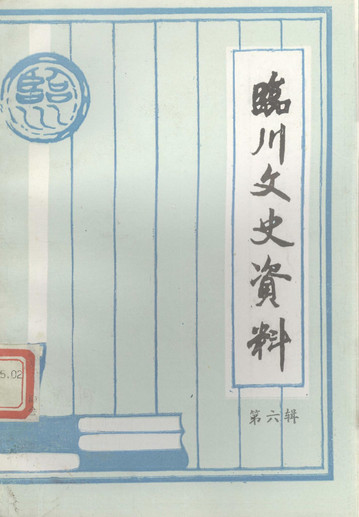 臨川文史資料
第六辑
臨
5.02